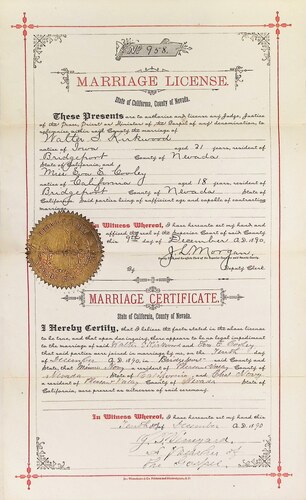 No 958.
MARRIAGE LICENSE.
State of California, County of Nevada.
These Presents are to authorize and license any Judge, Justice
of the Peace, Priest or Minister of the Gospel of any denomination, to
solemnize within said County the marriage of
Walter S. Kirkwood
native of Iowa aged 21 years, resident of
Bridgeport County of Nevada
State of California, and
Miss Eva E. Cooley
native of California aged 18 years, resident of
Bridgeport County of Nevada State of
California. Said parties being of sufficient age and capable of contracting
marriage.
In Witness Whereof, I have hereunto set my hand and
affixed the seal of the Superior Court of said County
this 9th day of December A.D. 1890.
J. L. Morgan,
By
Deputy Clerk.
MARRIAGE CERTIFICATE.
State of California, County of Nevada.
I Hereby Certify, that I believe the facts stated in the above license
to be true, and that upon due inquiry there appears to be no legal impediment
to the marriage of said
that said parties were joined in marriage by me, on the Tenth day
of December A.D. 1890, in Bridgeport said County and
State, that a resident of
Nevada State of California, and
a resident of County of Nevada State of
California, are present as witnesses of said ceremony.
In Witness Whereof, I have hereunto set my hand this
Tenth of December A.D. 1890
A Preacher of
the Gospel